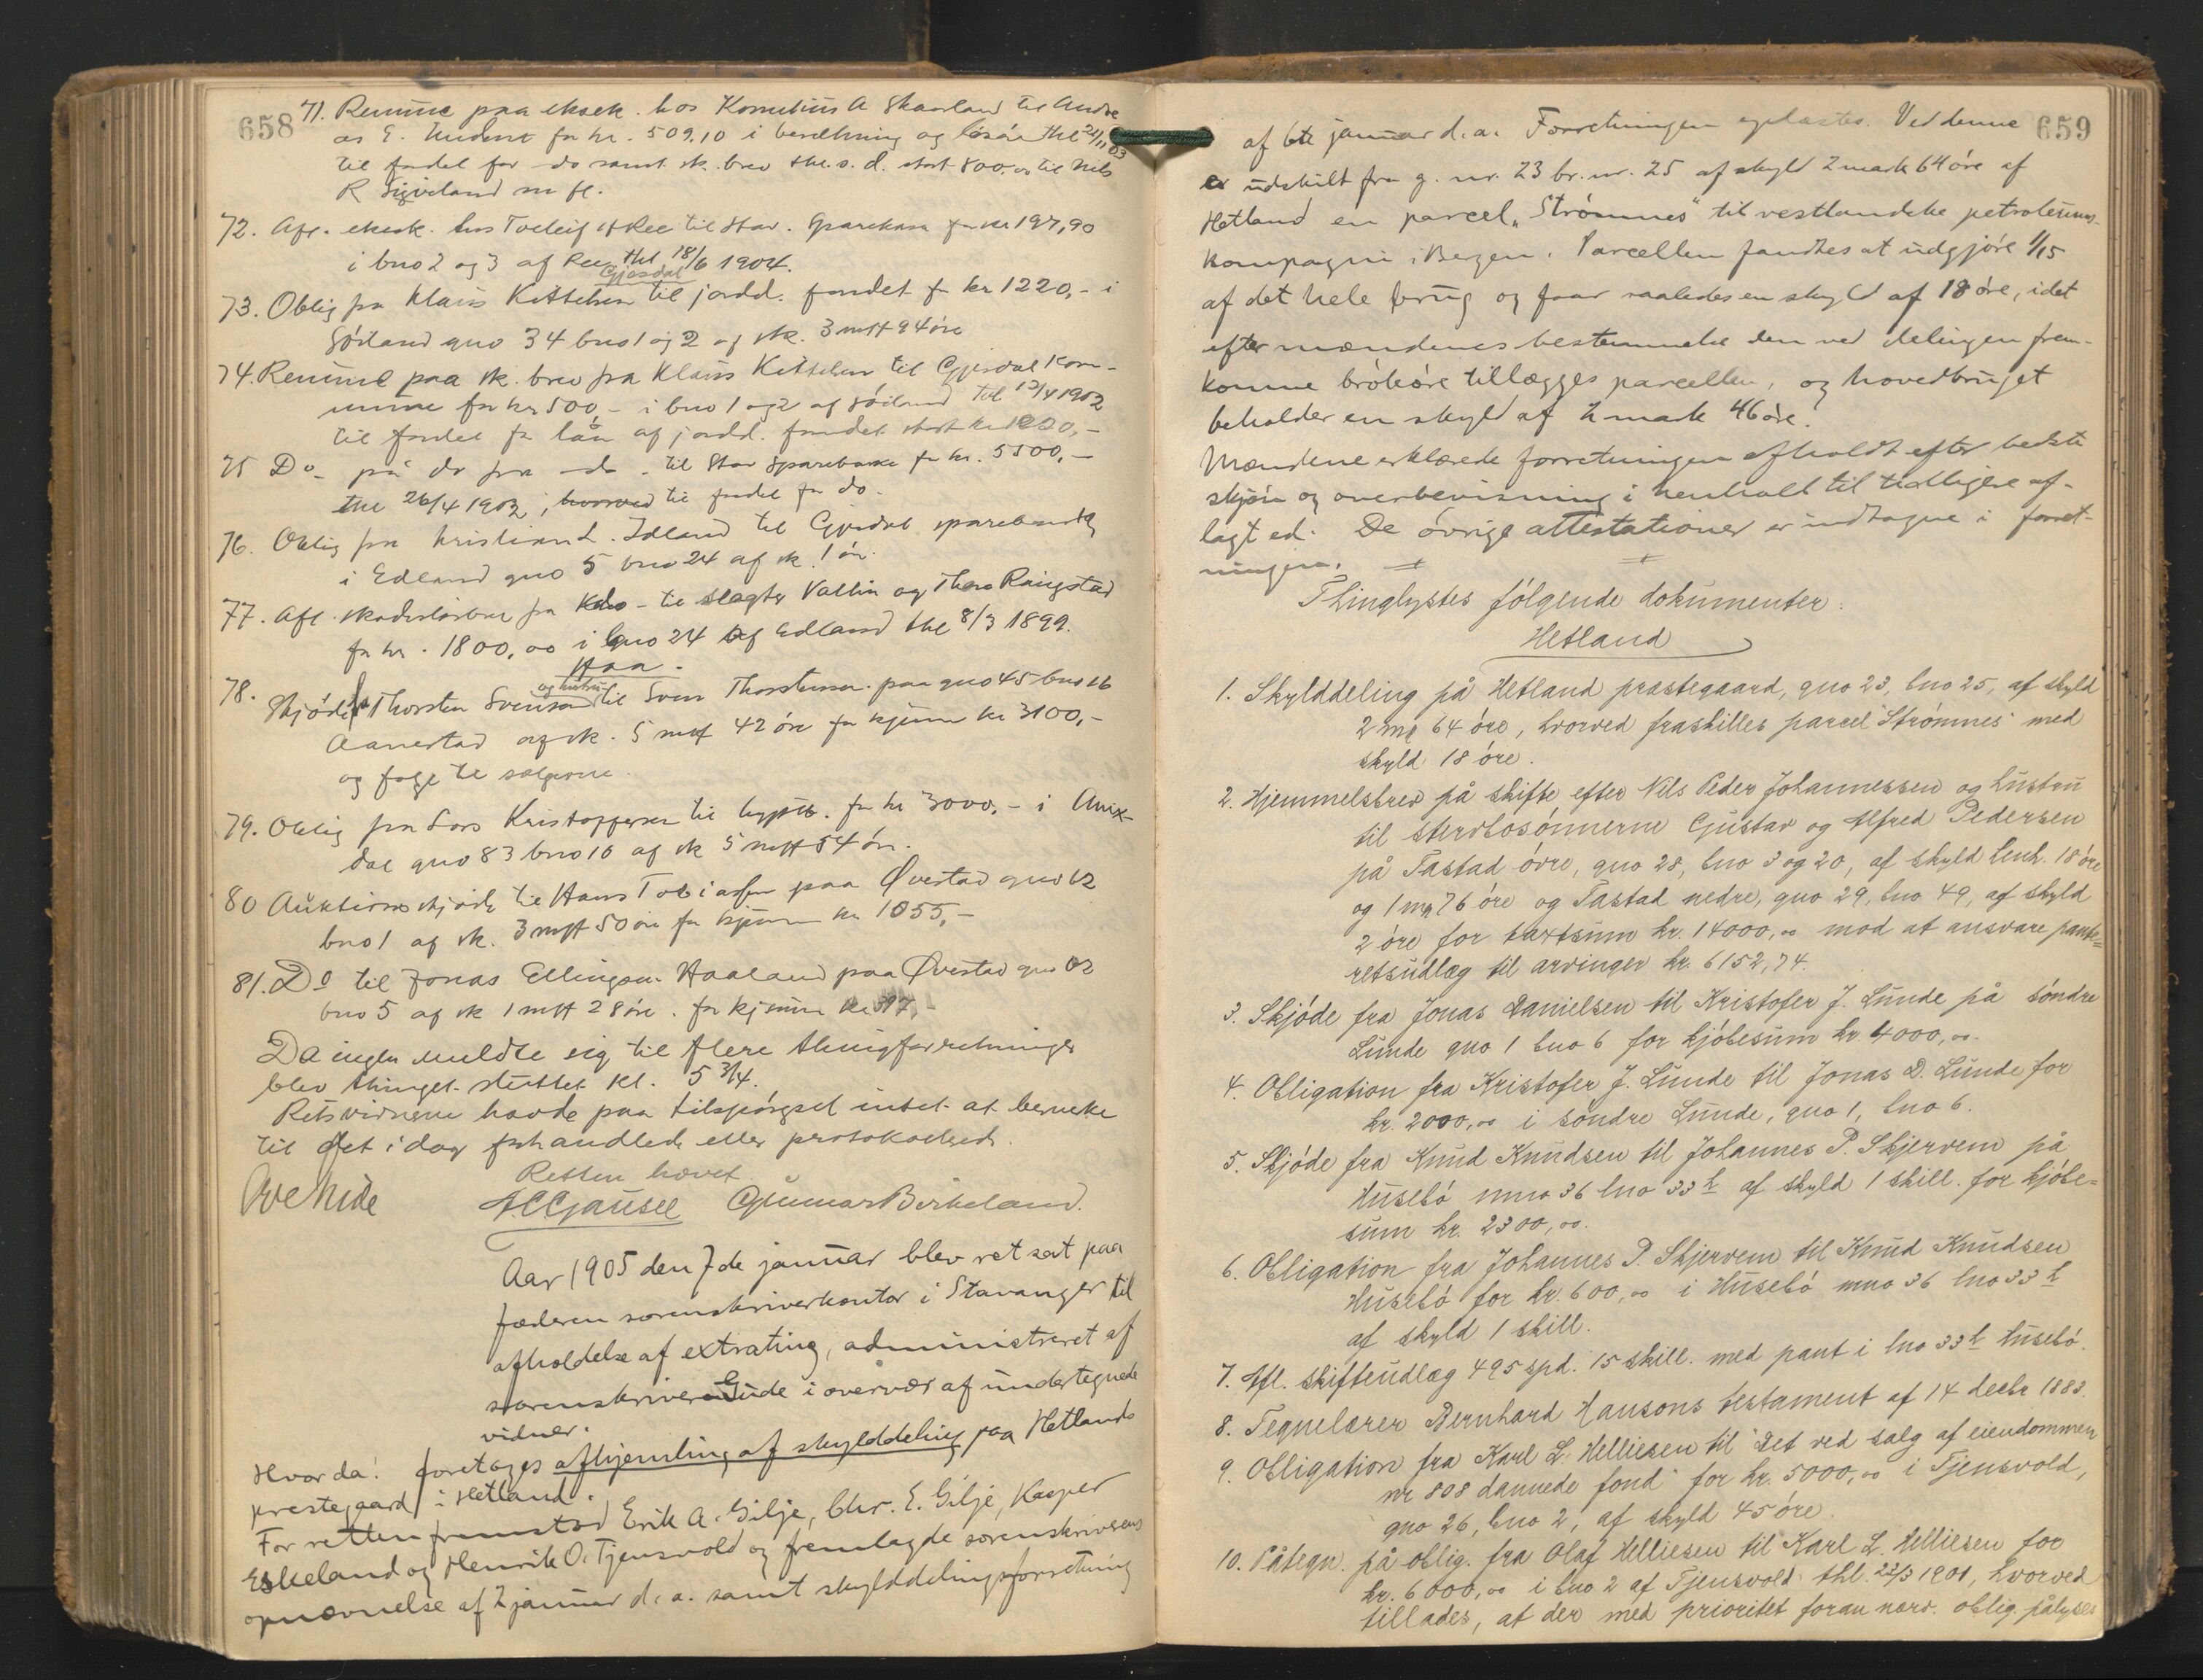 658
71. Renunc paa eksek. hos Kornelius A Skaarland til Andre
as E. for kr. 509.10 i besætning og løsøre thl 21/11 03
til fordel for do samt sk. brev thl. s. d. stort 800.00 til Nils
R Sigveland m fl.
72. Afl. eksek. hos Torleif H Ree til Stav. Sparekasse for kr 197,90
i bno 2 og 3 af Ree thl 18/6 1904.
Gjesdal
73. Oblig fra Klaus Kittelsen til jordd. fondet for kr 1220,- i
Søiland gno 34 bno 1 og 2 af sk. 3 mk 94 øre
74. Renunc paa sk. brev fra Klaus Kittelsen til Gjesdal Kom-
mune for kr 500,- i bno 1 og 2 af Søiland thl 13/4 1902
til fordel for lån af jordd. fondet stort kr 1220,-
75 Do på do fra do - til Stav Sparekasse for kr. 5500,-
thl 26/4 1902, til fordel for do.
76. Oblig fra Kristian L. Idland til Gjesdal sparebank
i Edland gno 5 bno 24 af sk. 1 øre.
77. Afl. skadesløsbrev fra do - til slagter Vallin og Thore Raugstad
for kr. 1800,00 i bno 24 af Edland thl 8/3 1899.
Haa -
78. Skjøde fra Thorsten Svensen og hustru til Sven Thorstensen paa gno 45 bno 16
Aanestad af sk. 5 mk 42 øre for kjøbesum kr 3100,-
og folge til sælgerne.
79. Oblig fra Lars Kristoffersen til hypotb. for kr 3000,- i Aux-
dal gno 83 bno 10 af sk 5 mk 54 øre.
80 Auktionsskjøde til Hans Tobiassen paa Øvestad gno 62
bno 1 af sk. 3 mk 50 øre for kjøbesum kr 1055,-
81. Do til Jonas Ellingsen Haaland paa Øvestad gno 62
bno 5 af sk 1 mk 28 øre. for kjøbesum kr 397,-
Da ingen meldte sig til flere thingforretninger
blev thinget sluttet kl. 5 3/4.
Retsvidnerne havde paa tilspørgsel intet at bemerke
til det i dag forhandlede eller protokollerede.
Retten hævet
Ove Gude A. C. Gausel Gunnar Birkeland.
Aar 1905 den 7de januar blev ret sat paa
Jæderen sorenskriverkontor i Stavanger til
afholdelse af extrating, administreret af
sorenskriver Gude i overvær af undertegnede
vidner.
Hvor da: foretages afhjemling af skylddeling paa Hetlands
prestegaard i Hetland.
For retten fremstod Erik A. Gilje, Chr. E. Gilje, Kasper
Eskeland og Henrik O. Tjensvold og fremlagde sorenskriverens
opnævnelse af 2 januar d. a. samt skylddelingsforretning
659
af 6te januar d. a. Forretningen oplæstes. Ved denne
er udskilt fra g. nr. 23 br. nr. 25 af skyld 2 mark 64 øre af
Hetland en parcel "Strømnes" til vestlandske petroleums-
kompagni i Bergen. Parcellen fandtes at udgjøre 1/15
af det hele brug og faar saaledes en skyld af 18 øre, idet
efter mændenes bestemmelse den ved delingen frem-
komne brøkøre tillægges parcellen, og hovedbruget
beholder en skyld af 2 mark 46 øre.
Mændene erklærede forretningen afholdt efter bedste
skjøn og overbevisning i henhold til tidligere af-
lagt ed. De øvrige attestationer er indtagne i forret-
ningen.
Thinglystes følgende dokumenter:
Hetland
1. Skylddeling på Hetland præstegaard, gno 23, bno 25, af skyld
2 mk 64 øre, hvorved fraskilles parcel "Strømnes" med
skyld 18 øre.
2. Hjemmelsbrev på skifte efter Nils Peder Johannessen og hustru
til sterbosønnerne Gustav og Alfred Pedersen
på Tastad øvre, gno 28, bno 3 og 20, af skyld henh. 18 øre
og 1 mk 76 øre og Tastad nedre, gno 29, bno 49, af skyld
2 øre for taxtsum kr. 14000,00 mod at ansvare pante=
retsudlæg til arvinger kr. 6152,74.
3. Skjøde fra Jonas Danielsen til Kristofer J. Lunde på søndre
Lunde gno 1 bno 6 for kjøbesum kr. 4000,00.
4. Obligation fra Kristofer J. Lunde til Jonas D. Lunde for
kr. 2000,00 i søndre Lunde, gno 1, bno 6.
5. Skjøde fra Knud Knudsen til Johannes P. Skjervem på
Husebø mno 36 lno 33 h af skyld 1 skill. for kjøbe=
sum kr. 2300,00.
6. Obligation fra Johannes P. Skjervem til Knud Knudsen
Husebø for kr. 600,00 i Husebø mno 36 lno 33 h
af skyld 1 skill.
7. Afl. skifteudlæg 495 spd. 15 skill. med pant i lno 33 h Husebø.
8. Tegnelærer Bernhard Hansons testament af 14 decbr 1883.
9. Obligation fra Karl L. Helliesen til "Det ved salg af eiendommen
nr 808 dannede fond" for kr. 5000,00 i Tjensvold,
gno 26, bno 2, af skyld 45 øre.
10. Påtegn. på oblig. fra Olaf Helliesen til Karl L. Helliesen for
kr. 6000,00 i bno 2 af Tjensvold thl. 22/3 1901, hvorved
tillades, at der med prioritet foran nærv. oblig. pålyses